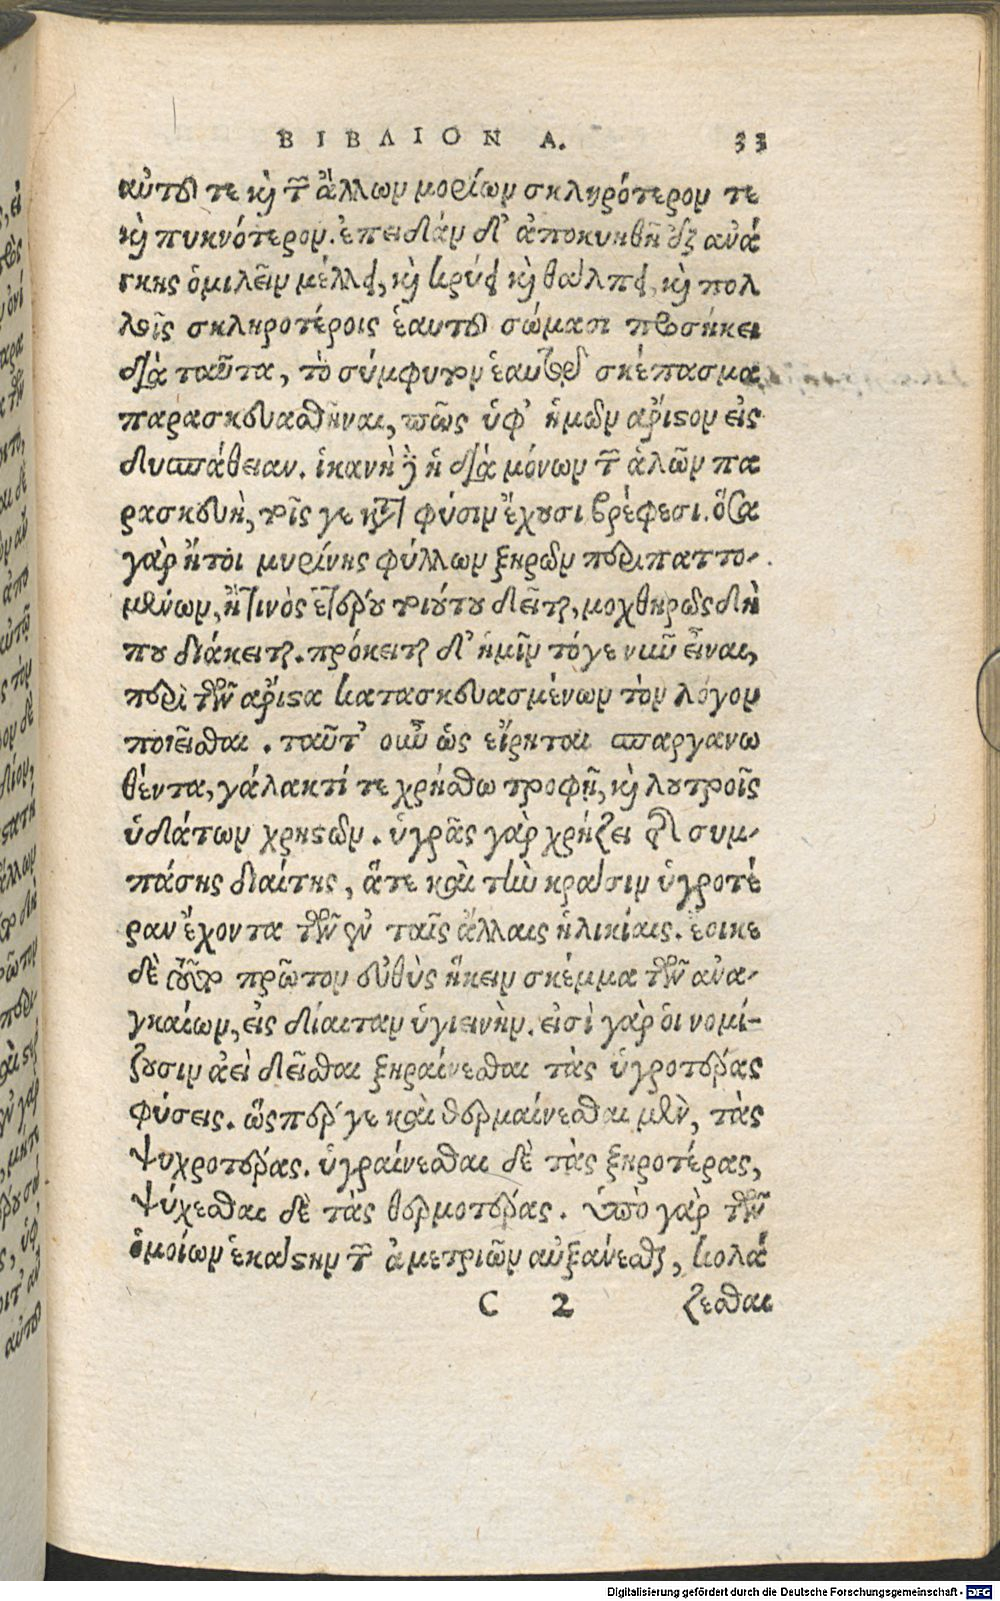 ΒΙΒΛΙΟΝ Α. 33
αὐτοῦ τε καὶ τῶν ἄλλων μορίων σκληρότερον τε
καὶ πυκνότερον. ἐπειδὰν δ' ἀποκυηθῇ δὲ ἀνά
γκης ὁμιλεῖν μέλλει, καὶ κρύει καὶ θάλπει, καὶ πολ
λοῖς σκληροτέροις ἑαυτοῦ σώμασι προσήκει
διὰ ταῦτα, τὸ σύμφυτον ἑαυτοῦ σκέπασμα
παρασκευασθῆναι, πῶς ὑφ' ἡμῶν ἄριστον εἰς
δυσπάθειαν. ἱκανὴ δὲ ἡ διὰ μόνων τῶν ἁλῶν πα
ρασκευὴ, τοῖς γε κατὰ φύσιν ἔχουσι βρέφεσι. ὅσα
γὰρ ἤτοι μυρίνης φύλλων ξηρῶν περιπαττο-
μένων, ἤ τινὸς ἑτέρου τοιούτου δεῖται, μοχθηρῶς δή
που διάκειται. πρόκειται δ' ἡμῖν τό γε νῦν εἶναι,
περὶ τῶν ἄριστα κατασκευασμένων τὸν λόγον
ποιεῖσθαι. ταῦτ' οὖν ὡς εἴρηται σπαργανω
θέντα, γάλακτί τε χρήσθω τροφῇ, καὶ λουτροῖς
ὑδάτων χρηστῶν. ὑγρᾶς γὰρ χρήζει τῆς συμ-
πάσης διαίτης, ἅτε καὶ τὴν κρᾶσιν ὑγροτέ
ραν ἔχοντα τῶν ἐν ταῖς ἄλλαις ἡλικίαις. ἔοικε
δὲ τοῦτο πρῶτον εὐθὺς ἥκειν σκέμμα τῶν ἀνα-
γκαίων, εἰς δίαιταν ὑγιεινὴν. εἰσὶ γὰρ οἱ νομί-
ζουσιν ἀεὶ δεῖσθαι ξηραίνεσθαι τὰς ὑγροτέρας
φύσεις. ὥσπερ γε καὶ θερμαίνεσθαι μὲν, τὰς
ψυχροτέρας. ὑγραίνεσθαι δὲ τὰς ξηροτέρας,
ψύχεσθαι δὲ τὰς θερμοτέρας. ὑπὸ γὰρ τῶν
ὁμοίων ἑκάστην τῶν ἀμετριῶν αὐξάνεσθαι, κολά
C 2 ζεσθαι
Digitalisierung gefördert durch die Deutsche Forschungsgemeinschaft - DFG